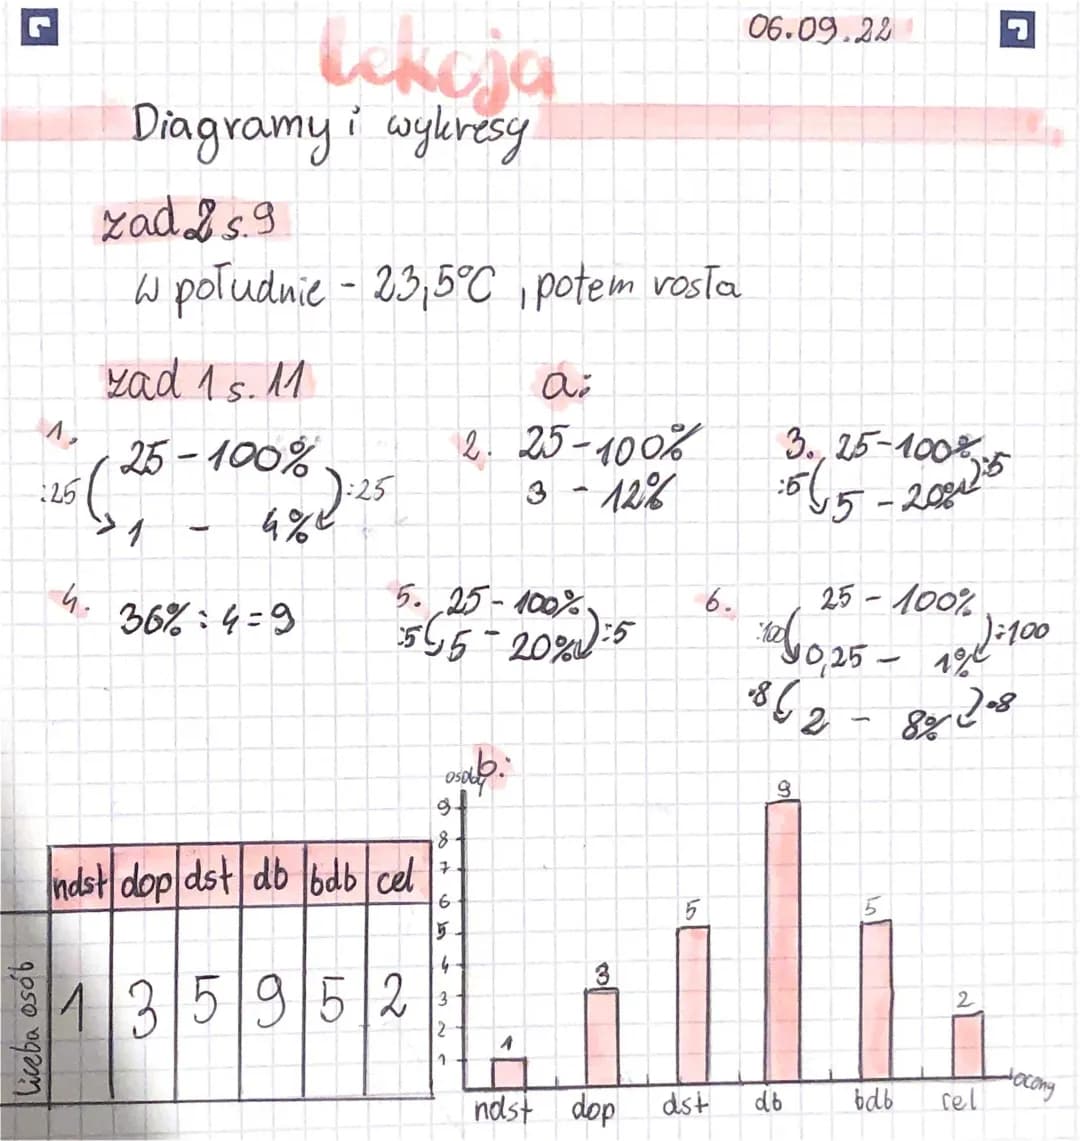 06.09.22
Lekcja
Diagramy i wykresy
zad 2 s.9
w południe - 23,5°C , potem rosła
zad 1 s. 11
a:
1.
25 - 100%
:25 :25
1 - 4%
2. 25 - 100%
3 - 12%
3. 25 - 100%
:5 :5
5 - 20%
4. 36% : 4 = 9
5. 25 - 100%
:5 5 - 20% :5
6. 25 - 100%
:100 :100
0,25 - 1%
·8 ·8
2 - 8%
b:
ndst dop dst db bdb cel
liczba osób 1 3 5 9 5 2
osoby
9
8
7
6
5
4
3
2
1
1 3 5 9 5 2
ndst dop dst db bdb cel
oceny